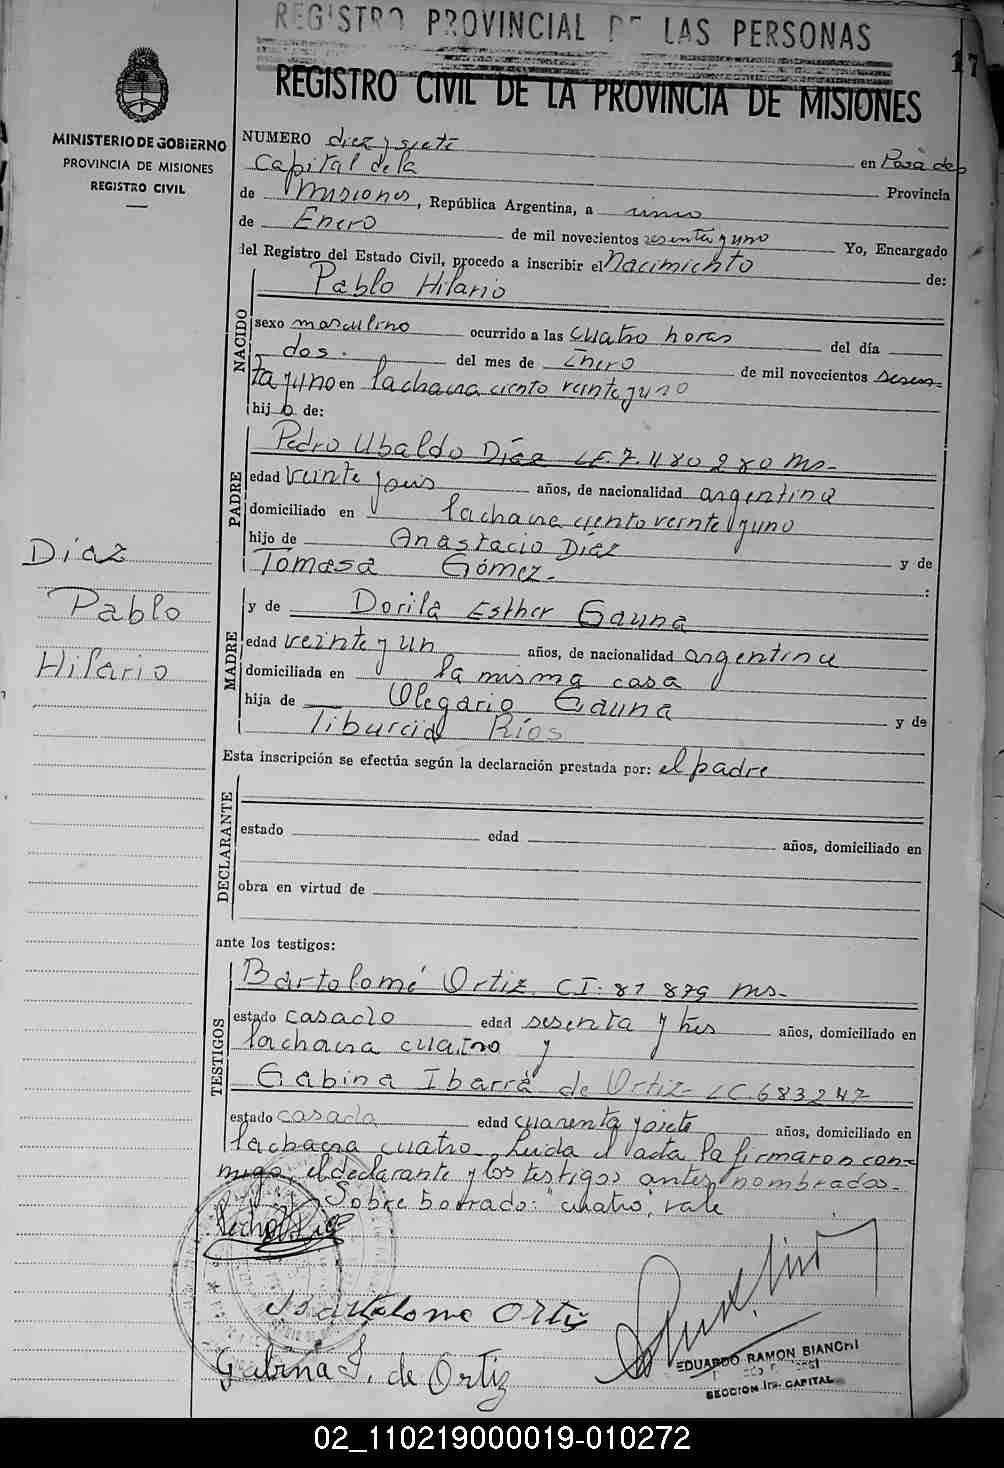 REGISTRO PROVINCIAL DE LAS PERSONAS
17
REGISTRO CIVIL DE LA PROVINCIA DE MISIONES
MINISTERIO DE GOBIERNO
PROVINCIA DE MISIONES
REGISTRO CIVIL
NUMERO diez y siete en Posadas
Capital de la Provincia
de Misiones, República Argentina, a
de Enero de mil novecientos sesenta y uno Yo, Encargado
del Registro del Estado Civil, procedo a inscribir el Nacimiento de:
Pablo Hilario
NACIDO
sexo masculino ocurrido a las cuatro horas del día
dos. del mes de Enero de mil novecientos sesen-
ta y uno en la chacra ciento veinte y uno
hijo de:
Pedro Ubaldo Díaz LE. 7.480280 ms-
PADRE
edad veinte y seis años, de nacionalidad argentina
domiciliado en la chacra ciento veinte y uno
hijo de Anastacio Díaz y de
Tomasa Gómez.-
Díaz
Pablo
Hilario
MADRE
y de Dorila Esther Gauna
edad veinte y un años, de nacionalidad argentina
domiciliada en la misma casa
hija de Olegario Gauna y de
Tiburcia Ríos
Esta inscripción se efectúa según la declaración prestada por: el padre
DECLARANTE
estado edad años, domiciliado en
obra en virtud de
ante los testigos:
TESTIGOS
Bartolomé Ortiz CI. 87 879 ms-
estado casado edad sesenta y tres años, domiciliado en
la chacra cuatro y
Gabina Ibarra de Ortiz- LC. 683247
estado casada edad cuarenta y siete años, domiciliado en
la chacra cuatro. Leida el acta la firmaron con-
migo, el declarante y los testigos antes nombrados.-
Sobre borrado: "cuatro", vale
Bartolome Ortiz
Gabina I. de Ortiz
EDUARDO RAMON BIANCHI
SECCION 1ra. CAPITAL
02_110219000019-010272